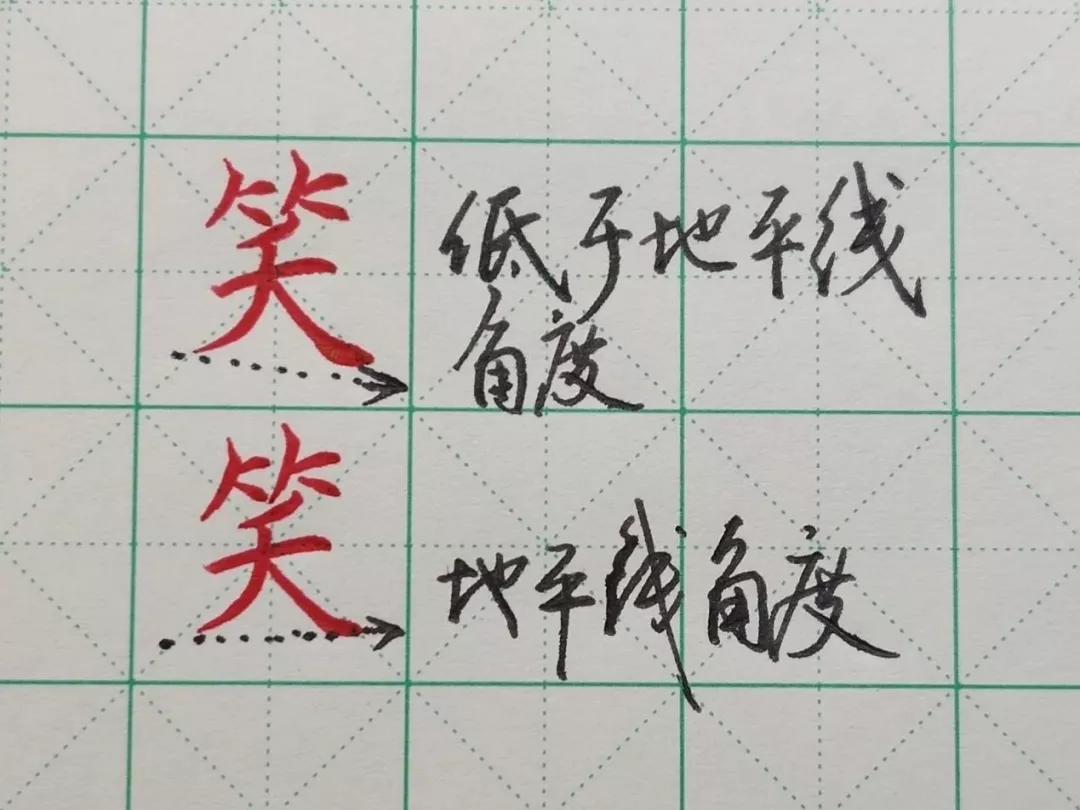 笑
低于地平线
角度
笑
地平线角度